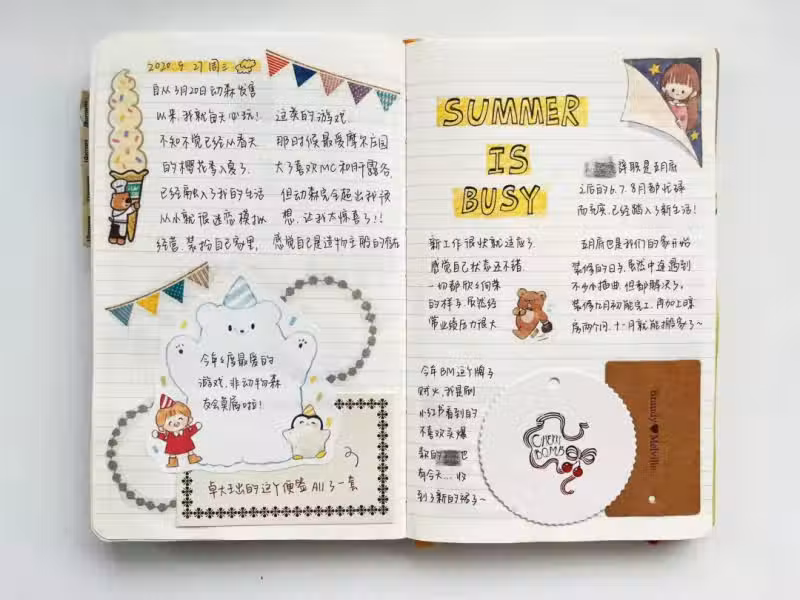 2020.4.27 周三
自从3月20日动森发售
以来,我就每天必玩!
不知不觉已经从春天
的樱花季入夏了.
已经融入了我的生活
从小就很迷恋模拟
经营、装扮自己家里,
这类的游戏.
那时候最爱摩尔庄园
大了喜欢MC和肝露谷,
但动森完全超出我预
想,让我太惊喜了!!
感觉自己是造物主般的存在
今年度最爱的
游戏,非动物森
友会莫属啦!
卓大王出的这个便签 All了一套
SUMMER
IS
BUSY
辞职是五月底
之后的6.7.8月都忙碌
而充实,已经踏入了新生活!
新工作很快就适应了.
感觉自己状态还不错.
一切都欣欣向荣
的样子,虽然经
常业绩压力很大
五月底也是我们的家开始
装修的日子,虽然中途遇到
不少小插曲,但都解决了.
装修九月初能完工,再加上晾
房两个月,十一月就能搬家了~
今年BM这个牌子
好火,我是刷
小红书看到的
不喜欢买爆
款的 也
有今天...收
到了新的裙子~
CHERRI
BOMB
Brandy♥Melville